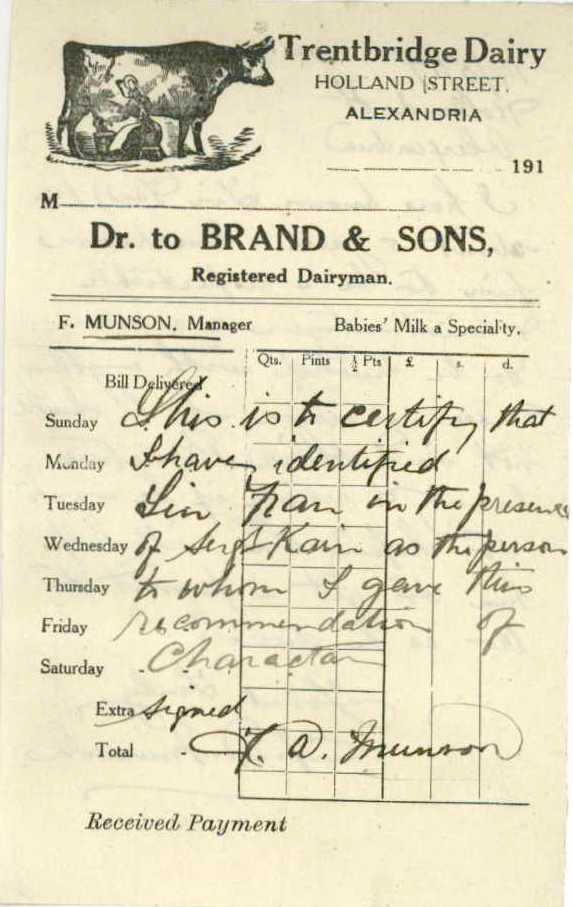 Trentbridge Dairy
HOLLAND STREET,
ALEXANDRIA
191
M
Dr. to BRAND & SONS,
Registered Dairyman.
F. MUNSON, Manager Babies' Milk a Speciality.
Qts. Pints ½ Pts £ s. d.
Bill Delivered
Sunday This is to certify that
Monday I have identified
Tuesday Lin Fan in the presence
Wednesday of Sergt Kain as the person
Thursday to whom I gave this
Friday recommendation of
Saturday - Character
Extra signed
Total - F. A. Munson
Received Payment